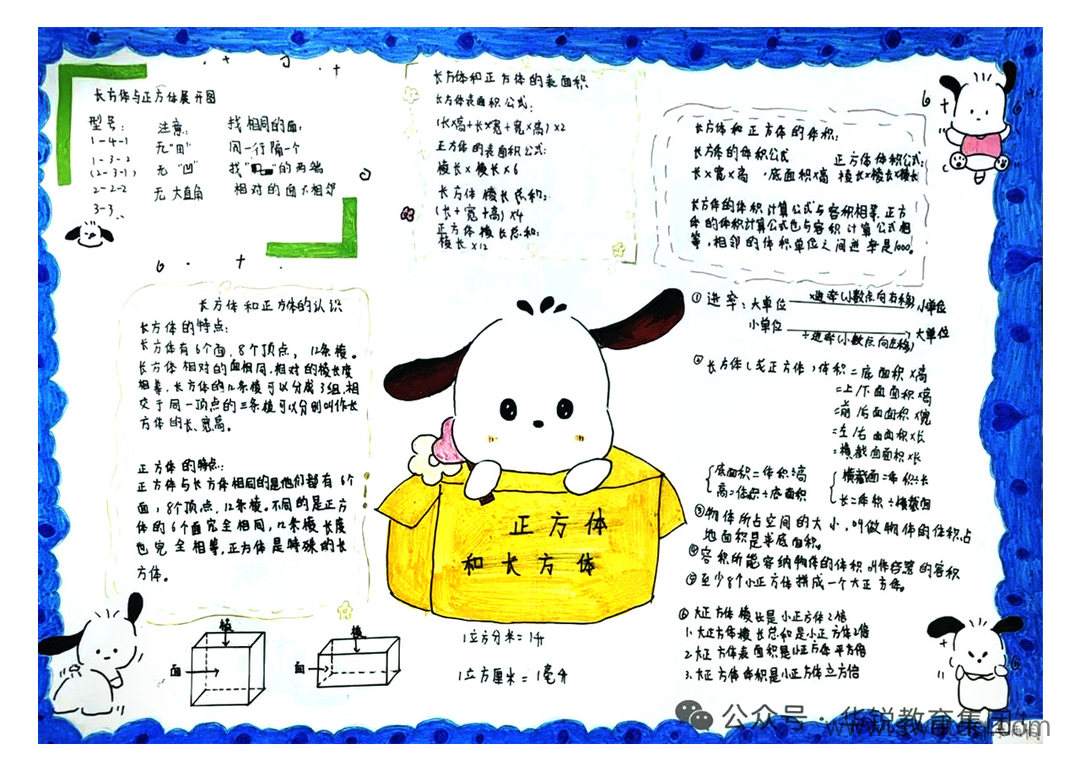 长方体与正方体展开图
型号：
1-4-1
1-3-2
(2-3-1)
2-2-2
3-3
注意：
无"田"
无"凹"
无大直角
找相同的面：
同一行隔一个
的两端
相对的面不相邻
长方体和正方体的表面积
长方体表面积公式：
(长×高+长×宽+宽×高)×2
正方体的表面积公式：
棱长×棱长×6
长方体棱长总和：
(长+宽+高)×4
正方体棱长总和：
棱长×12
长方体和正方体的体积：
长方体的体积公式
正方体体积公式：
长×宽×高，底面积×高 棱长×棱长×棱长
长方体的体积计算公式与容积相等，正方
体的体积计算公式也与容积计算公式相
等，相邻的体积单位之间进率是1000。
长方体和正方体的认识
长方体的特点：
长方体有6个面，8个顶点，12条棱。
长方体相对的面相同，相对的棱长度
相等，长方体的12条棱可以分成3组，相
交于同一顶点的三条棱可以分别叫作长
方体的长、宽、高。
正方体的特点：
正方体与长方体相同的是他们都有6个
面，8个顶点，12条棱。不同的是正方
体的6个面完全相同，12条棱长度
也完全相等，正方体是特殊的长
方体。
正方体
和长方体
①进率：大单位 ×进率(小数点向右移) 小单位
小单位 ÷进率(小数点向左移) 大单位
②长方体(或正方体)体积=底面积×高
=上/下面面积×高
=前/后面面积×宽
=左/右面面积×长
=横截面面积×长
底面积=体积÷高
高=体积÷底面积
横截面=体积÷长
长=体积÷横截面
③物体所占空间的大小，叫做物体的体积，占
地面积是半底面积。
④容积所能容纳物体的体积叫作容器的容积
⑤至少8个小正方体拼成一个大正方体。
⑥大正方体棱长是小正方体2倍
1.大正方体棱长总和是小正方体2倍
2.大正方体表面积是小正方体平方倍
3.大正方体体积是小正方体立方倍
棱
面
棱
面
1立方分米=1升
1立方厘米=1毫升
公众号·华锐教育集团